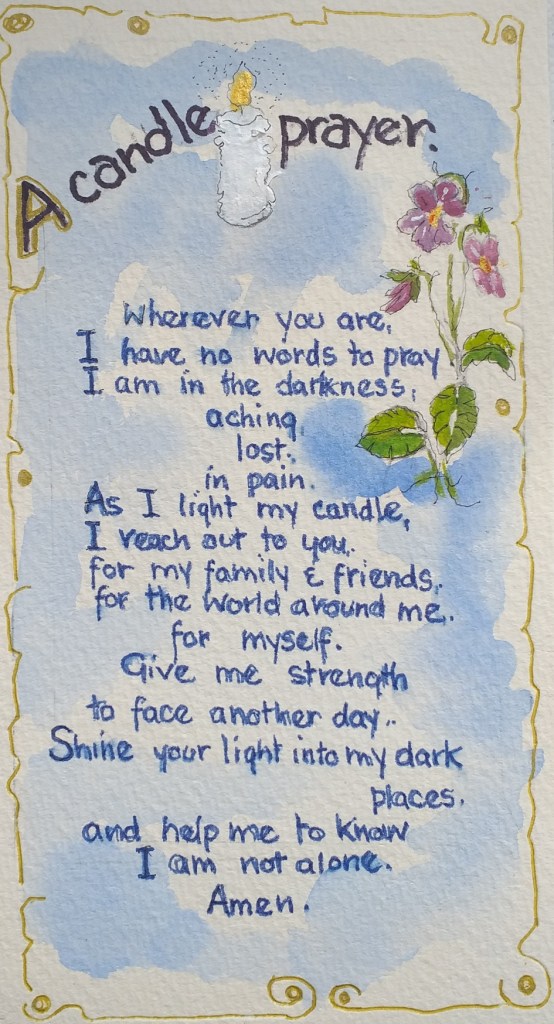 A candle prayer.
Wherever you are,
I have no words to pray
I am in the darkness,
aching,
lost,
in pain.
As I light my candle,
I reach out to you.
for my family & friends,
for the world around me,
for myself.
Give me strength
to face another day..
Shine your light into my dark
places,
and help me to know
I am not alone.
Amen.